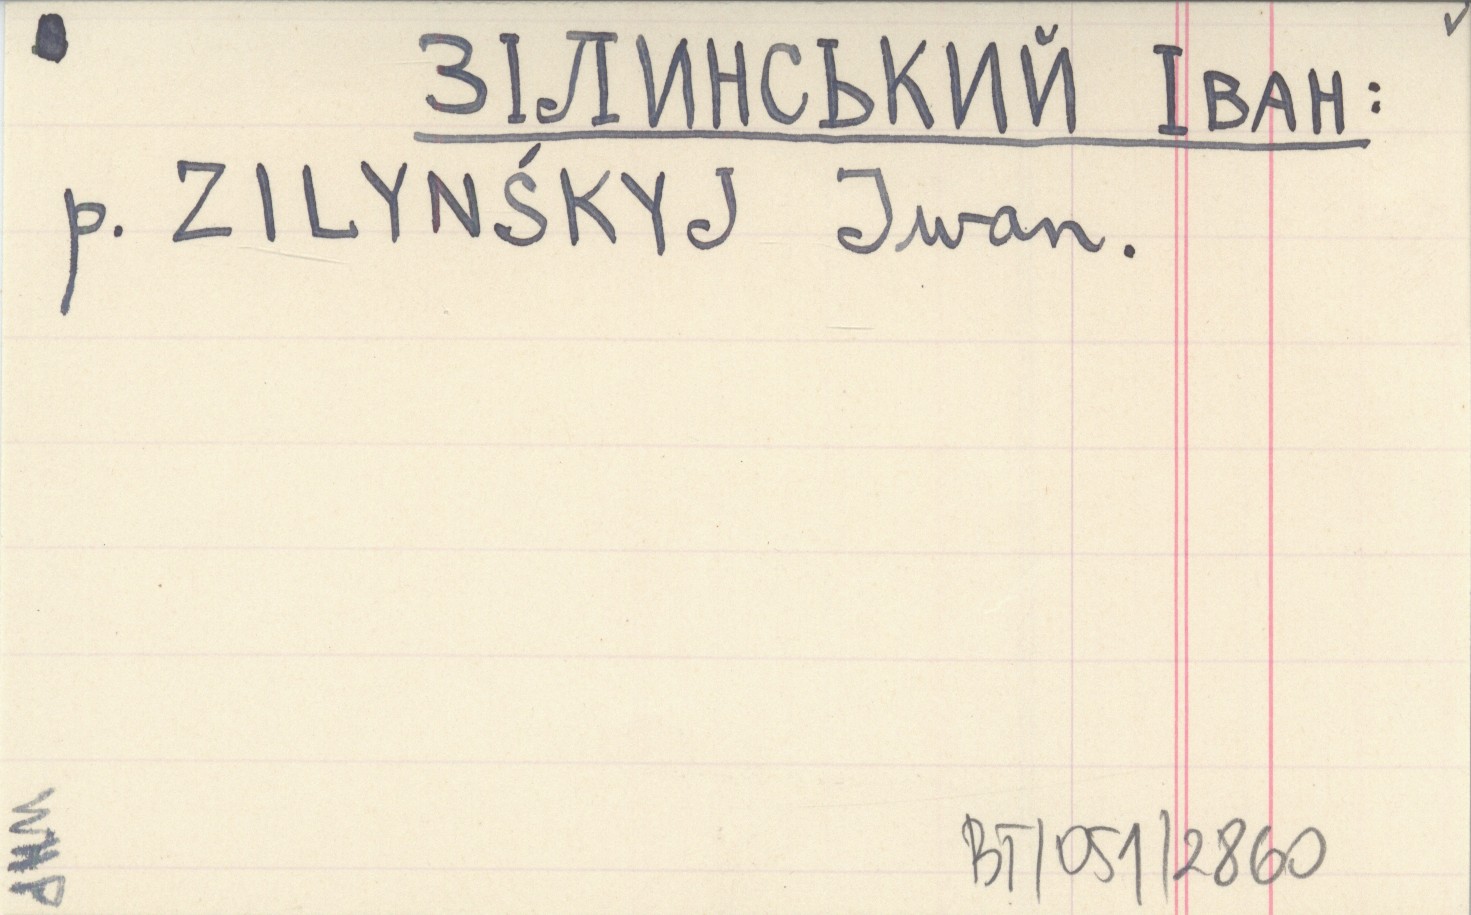 ЗІЛИНСЬКИЙ ІВАН:
p. ZILYNŚKYJ Iwan.
BT/051/2860
WHP